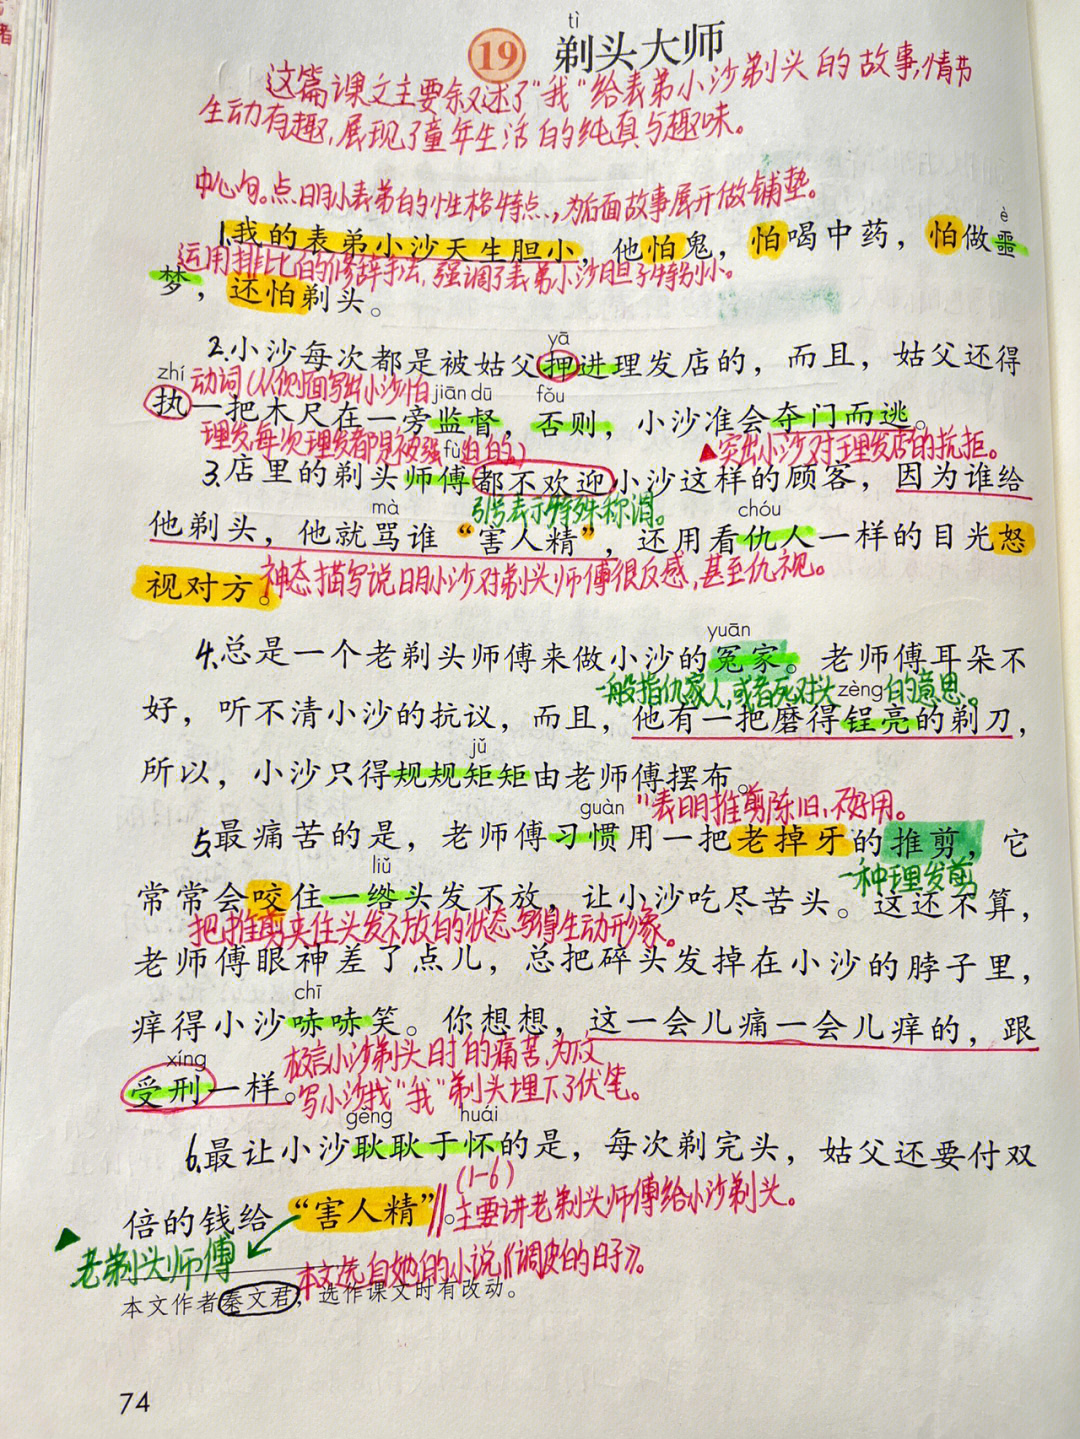 tì
19 剃头大师
这篇课文主要叙述了“我”给表弟小沙剃头的故事,情节
生动有趣,展现了童年生活的纯真与趣味。
中心句。点明小表弟的性格特点,为后面故事展开做铺垫。
è
1.我的表弟小沙天生胆小，他怕鬼，怕喝中药，怕做噩
运用排比的修辞手法,强调了表弟小沙胆子特别小。
梦，还怕剃头。
yā
2.小沙每次都是被姑父押进理发店的，而且，姑父还得
zhí 动词(从侧面写出小沙怕 jiān dū fǒu
执一把木尺在一旁监督，否则，小沙准会夺门而逃。
理发,每次理发都是被强迫的。) fù ▲突出小沙对理发店的抗拒。
3.店里的剃头师傅都不欢迎小沙这样的顾客，因为谁给
mà 引号表示特殊称谓。 chóu
他剃头，他就骂谁“害人精”，还用看仇人一样的目光怒
视对方。神态描写说明小沙对剃头师傅很反感,甚至仇视。
yuān
4.总是一个老剃头师傅来做小沙的冤家。老师傅耳朵不
一般指仇家人,或者死对头的意思。 zèng
好，听不清小沙的抗议，而且，他有一把磨得锃亮的剃刀，
jǔ
所以，小沙只得规规矩矩由老师傅摆布。
guàn "表明推剪陈旧,不好用。
5.最痛苦的是，老师傅习惯用一把老掉牙的推剪，它
liǔ 一种理发剪
常常会咬住一绺头发不放，让小沙吃尽苦头。这还不算，
把推剪夹住头发不放的状态写得生动形象。
老师傅眼神差了点儿，总把碎头发掉在小沙的脖子里，
chī
痒得小沙哧哧笑。你想想，这一会儿痛一会儿痒的，跟
xíng 极言小沙剃头时的痛苦,为下文
受刑一样。写小沙找“我”剃头埋下了伏笔。
gěng huái
6.最让小沙耿耿于怀的是，每次剃完头，姑父还要付双
(1-6)
倍的钱给“害人精”。主要讲老剃头师傅给小沙剃头。
▲老剃头师傅
本文选自她的小说《调皮的日子》。
本文作者秦文君，选作课文时有改动。
74